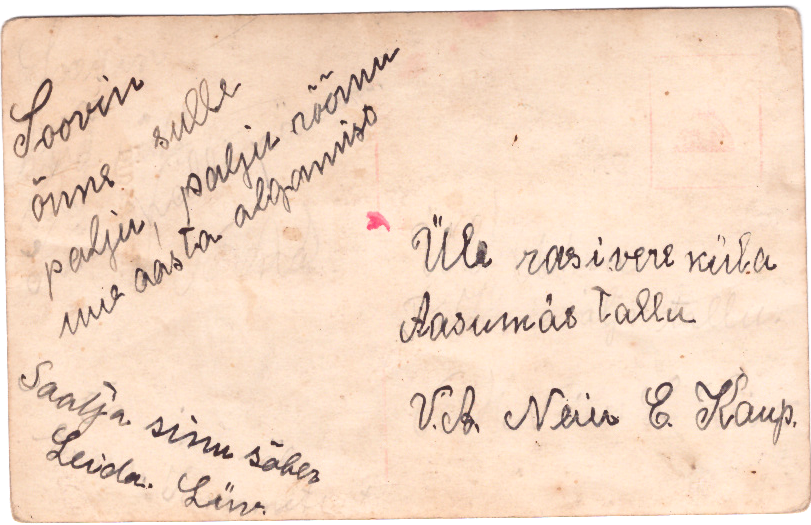 Soovin
õnne sulle
palju, palju rõõmu
uue aasta algamiso
Saatja sinu sõber
Leida. Liiv.
Üle rasivere küla
Aasumäs tallu
V.A. Neiu E. Kaup.